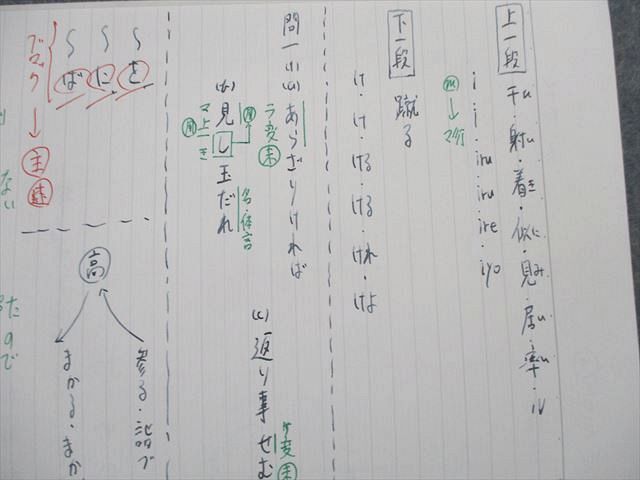 上一段 干・射・着・似・見・居・率・
i・i・iru・iru・ire・iyo
m → マ行
下一段 蹴る
け・け・ける・ける・けれ・けよ
問一 (1) (a) あらざりければ
ラ変 未
(b) 見し玉だれ
マ上一 用
き
名・体言
(c) 返り事せむ
サ変 未
〜を
〜に
〜ば
→ 主
参る・詣づ
高
まかる・まか
ない
たので